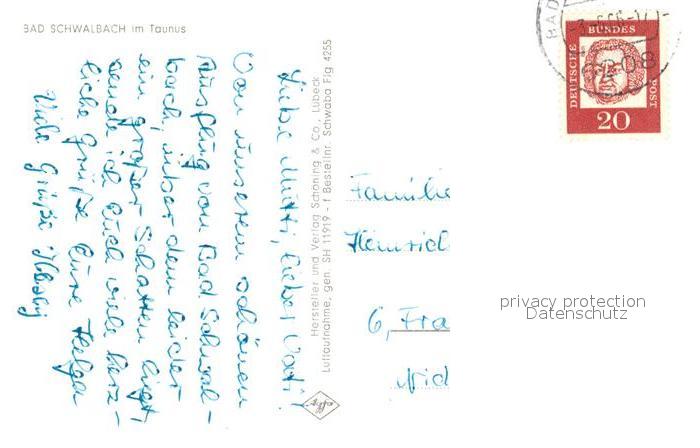 BAD SCHWALBACH im Taunus
Liebe Mutti, lieber Vati!
Von unserem schönen
Ausflug von Bad Schwal-
bach, über dem leider
ein großer Schatten liegt,
sende ich Euch viele herz-
liche Grüße Eure Helga
Viele Grüße
Hersteller und Verlag Schöning & Co., Lübeck
Luftaufnahme, gen. SH 11919 - f Bestellnr. Schwaba Flg 4255
Agfa
BAD
6208
DEUTSCHE BUNDES POST
20
Familie
Heinrich
6, Fra
Nid
privacy protection
Datenschutz